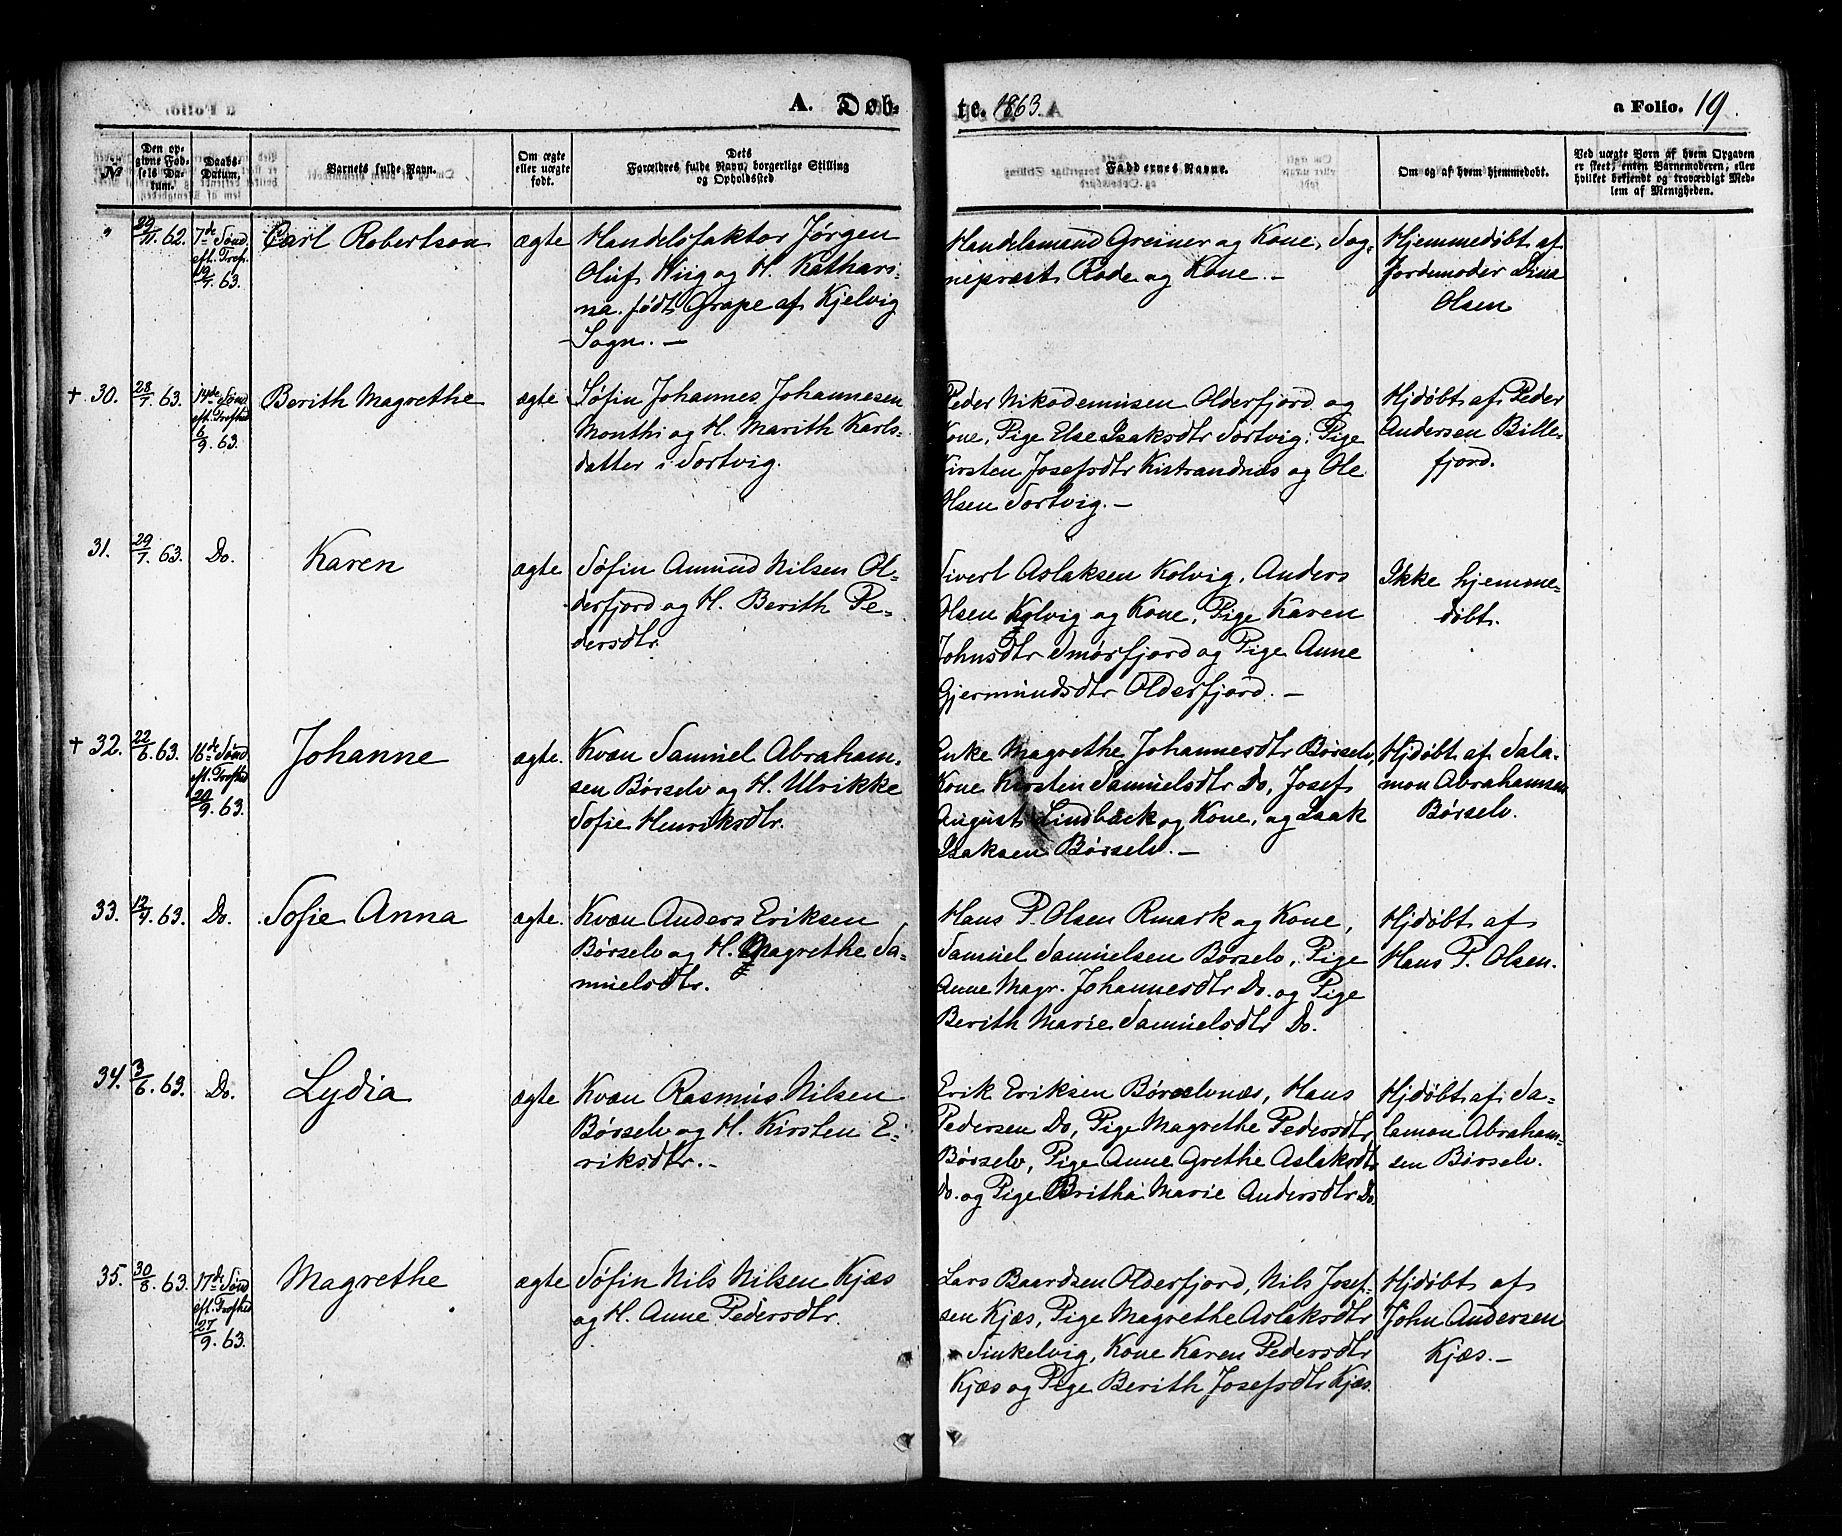 A. Døb-
te. 1863.
a Folio. 19.
No
Den op-
givne Fød-
sels Da-
tum.
Daabs-
Datum.
Barnets fulde Navn.
Om ægte
eller uægte
født.
Dets
Forældres fulde Navn, borgerlige Stilling
og Opholdssted
Faddernes Navne.
Om og af hvem hjemmedøbt.
Ved uægte Børn af hvem Opgaven
er skeet, enten Barnemoderen, eller
hvilket bekjendt og troværdigt Med-
lem af Menigheden.
" 29/11 62. 7de Sønd.
eft. Tref.
19/7 63.
Carl Robertson
ægte
Handelsfaktor Jørgen
Oluf Wiig og H. Kathari-
na født Grape af Kjelvig
Sogn. —
Handelsmand Greiner og Kone, Sog-
nepræst Rode og Kone. —
Hjemmedøbt af
Jordemoder Lina
Olsen
+ 30. 28/7 63. 14de Sønd
eft. Trefhed
6/9 63.
Berith Magrethe
ægte
Søfin Johannes Johannesen
Monthi og H. Marith Karls-
datter i Sortvig.
Peder Nikodemusen Olderfjord og
Kone, Pige Else Isaksdtr Sortvig, Pige
Kirsten Josefsdtr Kistrandnæs og Ole
Olsen Sortvig. —
Hjdøbt af Peder
Andersen Bille-
fjord.
31. 29/7 63. Do.
Karen
ægte
Søfin Amund Nilsen Ol-
derfjord og H. Berith Pe-
dersdtr.
Sivert Aslaksen Kolvig, Anders
Olsen Kolvig og Kone, Pige Karen
Johnsdtr Smørfjord og Pige Anne
Gjermundsdtr Olderfjord. —
Ikke hjemme-
døbt.
+ 32. 22/6 63. 16de Sønd
eft. Trefhed
20/9 63.
Johanne
ægte.
Kvæn Samuel Abraham-
sen Børselv og H. Ulrikke
Sofie Henriksdtr.
Enke Magrethe Johannesdtr Børselv,
Kone Kirsten Samuelsdtr Do, Josef
August Lindbäck og Kone, og Isak
Isaksen Børselv. —
Hjdøbt af Sala-
mon Abrahamsen
Børselv.
33. 12/4 63. Do.
Sofie Anna
ægte.
Kvæn Anders Eriksen
Børselv og H. Magrethe Sa-
muelsdtr.
Hans P. Olsen Rmark og Kone,
Samuel Samuelsen Børselv, Pige
Anne Magr. Johannesdtr Do. og Pige
Berith Marie Samuelsdtr Do.
Hjdøbt af
Hans P. Olsen.
34. 3/6 63. Do.
Lydia
ægte
Kvæn Rasmus Nilsen
Børselv og H. Kirsten E-
riksdtr. -
Erik Eriksen Børselvnæs, Hans
Pedersen Do, Pige Magrethe Pedersdtr
Børselv, Pige Anne Grethe Aslaksdtr
Do. og Pige Britha Marie Andersdtr Do.
Hjdøbt af Sa-
lamon Abraham-
sen Børselv.
35. 30/8 63. 17de Sønd
eft. Trefhed
27/9 63.
Magrethe
ægte
Søfin Nils Nilsen Kjæs
og H. Anne Pedersdtr.
Lars Baardsen Olderfjord, Nils Josef-
sen Kjæs, Pige Magrethe Aslaksdtr
Sinkelvig, Kone Karen Pedersdtr
Kjæs og Pige Berith Josefsdtr Kjæs.
Hjdøbt af
John Andersen
Kjæs. —